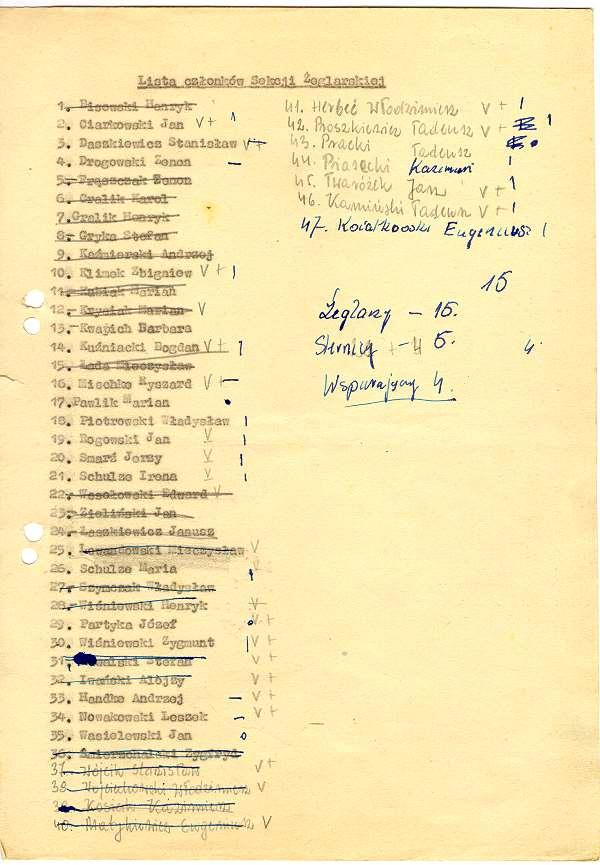 Lista członków Sekcji Żeglarskiej
1. Bisowski Henryk
2. Ciarkowski Jan V +
3. Daszkiewicz Stanisław V +
4. Drogowski Zenon —
5. Frąszczak Zenon
6. Gralik Karol
7. Gralik Henryk
8. Gryka Stefan
9. Kaźmierski Andrzej
10. Klimek Zbigniew V +
11. Kubiak Marian
12. Krysiak Marian V
13. Kwapich Barbara
14. Kuźniacki Bogdan V +
15. Łada Mieczysław
16. Mischke Ryszard V +
17. Pawlik Marian
18. Piotrowski Władysław
19. Rogowski Jan V
20. Smarż Jerzy V
21. Schulze Irena V
22. Wesołowski Edward V
23. Zieliński Jan
24. Łaszkiewicz Janusz
25. Lewandowski Mieczysław V
26. Schulze Maria
27. Szymczak Władysław
28. Wiśniewski Henryk V
29. Partyka Józef V +
30. Wiśniewski Zygmunt V +
31. Stefan V +
32. Iwański Alojzy V +
33. Handke Andrzej — V +
34. Nowakowski Leszek — V +
35. Wasielewski Jan
36. Śmierzchalski Zygfryd
37. Wójcik Stanisław V +
38. Włodzimierz V
39. Kosicki Kazimierz
40. Matykiewicz Eugeniusz V
41. Herbeć Włodzimierz V +
42. Proszkiewicz Tadeusz V +
43. Pracki Tadeusz
44. Piasecki Kazimierz
45. Twaróżek Jan V +
46. Kamiński Tadeusz V +
47. Kwiatkowski Eugeniusz
15
Żeglarzy — 15.
Sternicy — 5. + 4
4.
Wspierający 4.